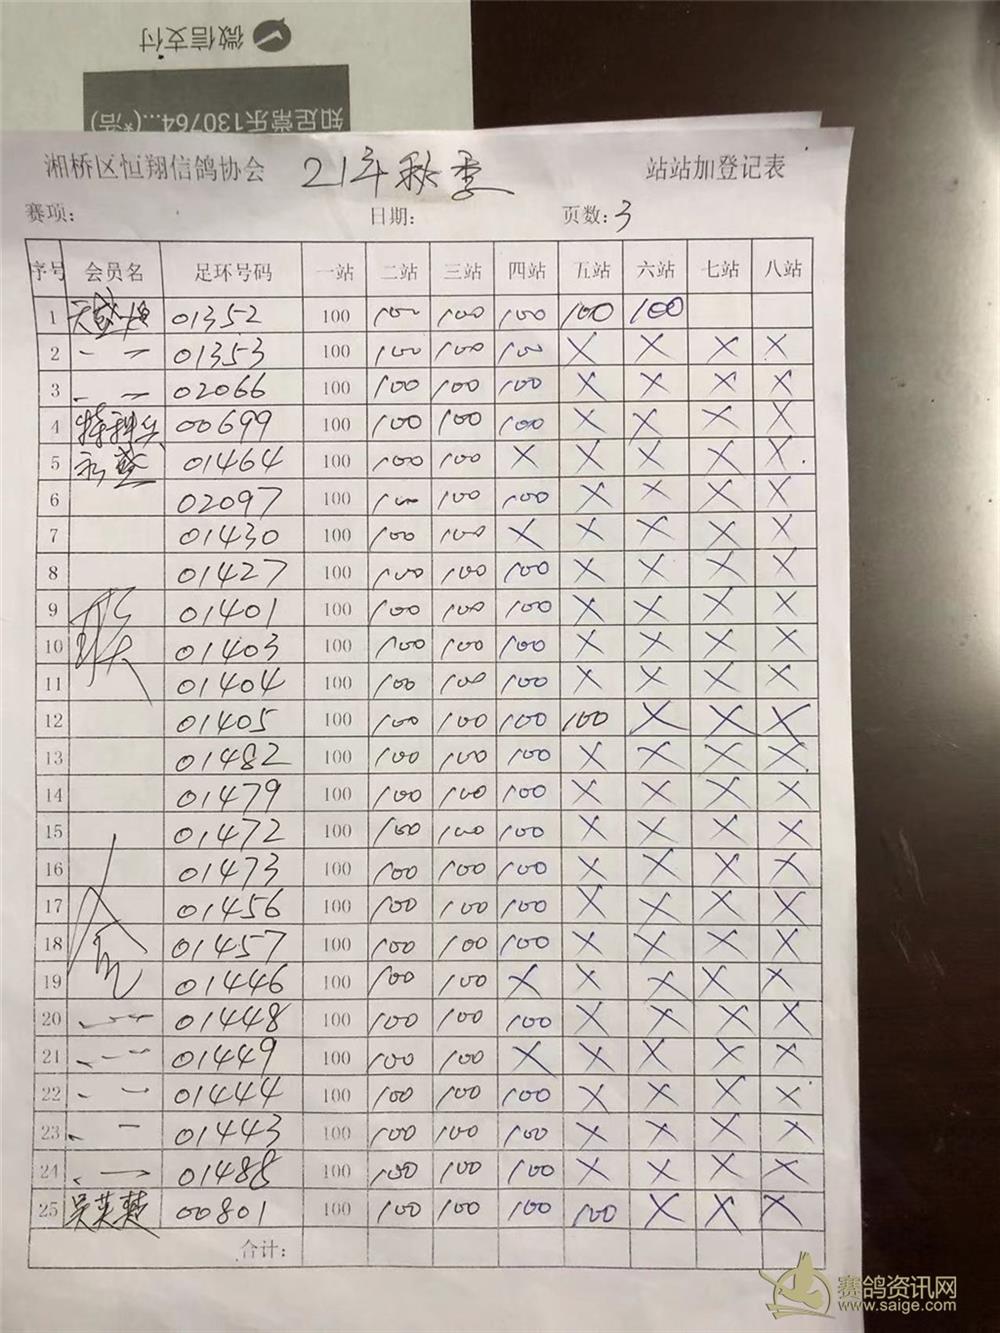 微信支付
知足常乐130764...(*浩)
湘桥区恒翔信鸽协会 21年秋季 站站加登记表
赛项: 日期: 页数: 3
序号 会员名 足环号码 一站 二站 三站 四站 五站 六站 七站 八站
1 01352 100 100 100 100 100 100
2 〃 01353 100 100 100 100 × × × ×
3 〃 02066 100 100 100 100 × × × ×
4 特种兵 00699 100 100 100 100 × × × ×
5 永盛 01464 100 100 100 × × × × ×
6 02097 100 100 100 100 × × × ×
7 01430 100 100 100 × × × × ×
8 01427 100 100 100 100 × × × ×
9 联 01401 100 100 100 100 × × × ×
10 01403 100 100 100 100 × × × ×
11 01404 100 100 100 100 × × × ×
12 01405 100 100 100 100 100 × × ×
13 01482 100 100 100 100 × × × ×
14 01479 100 100 100 100 × × × ×
15 01472 100 100 100 100 × × × ×
16 01473 100 100 100 100 × × × ×
17 01456 100 100 100 100 × × × ×
18 01457 100 100 100 100 × × × ×
19 01446 100 100 100 × × × × ×
20 〃 01448 100 100 100 100 × × × ×
21 〃 01449 100 100 100 × × × × ×
22 〃 01444 100 100 100 100 × × × ×
23 〃 01443 100 100 100 100 × × × ×
24 〃 01485 100 100 100 100 × × × ×
25 吴英楚 00801 100 100 100 100 100 × × ×
合计:
赛鸽资讯网
www.saige.com